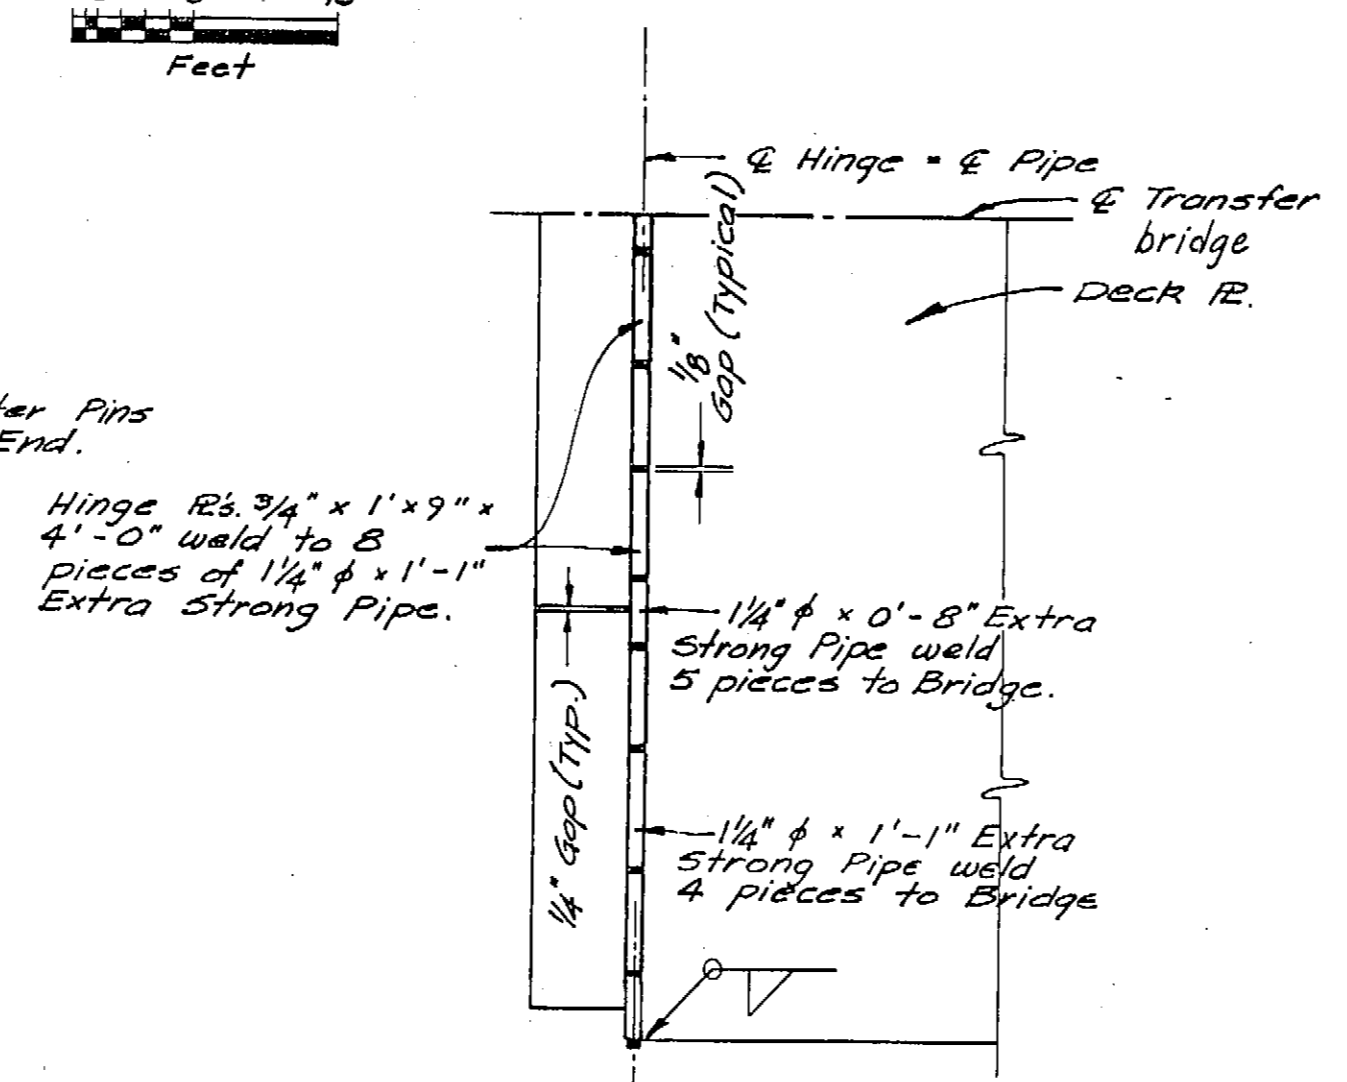 Feet
℄ Hinge = ℄ Pipe
℄ Transfer
bridge
Deck ℞.
1/8"
Gap (Typical)
Pins
End.
Hinge ℞'s. 3/4" x 1' x 9" x
4'-0" weld to 8
pieces of 1 1/4" ϕ x 1'-1"
Extra Strong Pipe.
1 1/4" ϕ x 0'-8" Extra
Strong Pipe weld
5 pieces to Bridge.
1/4" Gap (Typ.)
1 1/4" ϕ x 1'-1" Extra
Strong Pipe weld
4 pieces to Bridge